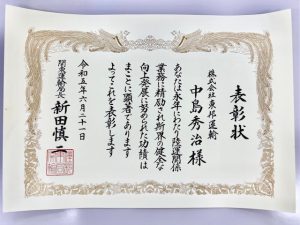 表彰状
株式会社東邦運輸
中島秀治様
あなたは永年にわたり陸運関係
業務に精励され斯界の健全な
向上発展に努められた功績は
まことに顕著であります
よってこれを表彰します
令和五年六月二十一日
関東運輸局長 新田慎二